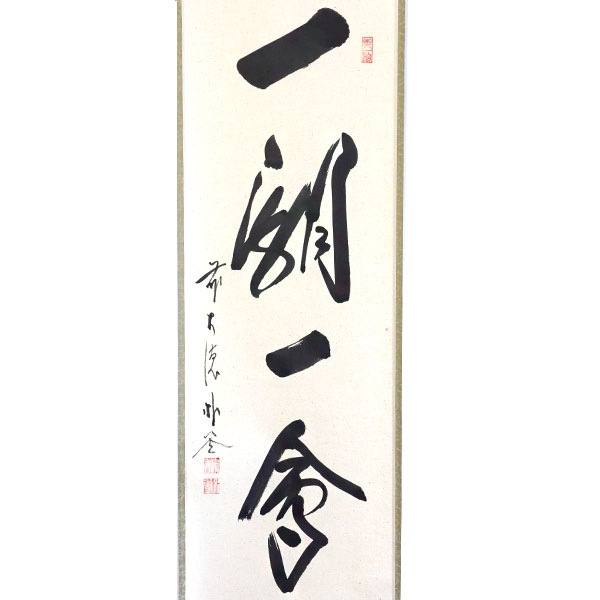 一期一會
前大徳